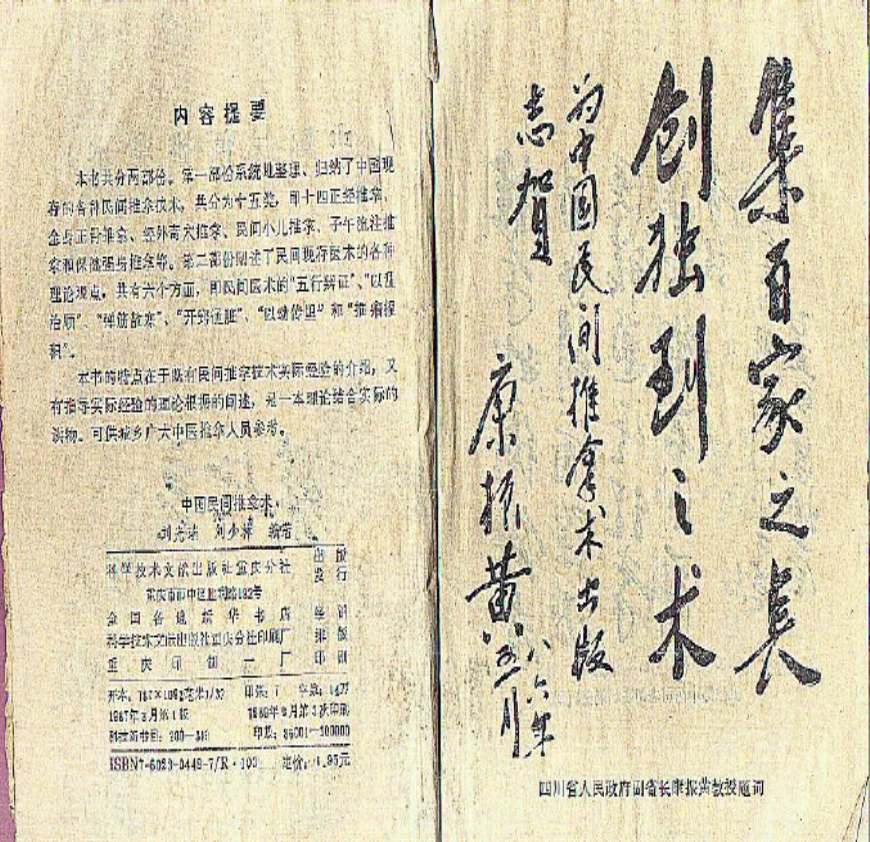 内容提要
本书共分两部份。第一部份系统地整理、归纳了中国现
存的各种民间推拿技术，共分为十五类，即十四正经推拿、
全身正骨推拿、经外奇穴推拿、民间小儿推拿、子午流注推
拿和保健强身推拿等。第二部份阐述了民间现存医术的各种
理论观点，共有六个方面，即民间医术的“五行辨证”、
治 “弹筋 “开窍 和
本书的特点在于既有民间推拿技术实际经验的介绍，又
有指导实际经验的理论根据的阐述，是一本理论结合实际的
读物。可供城乡广大中医推拿人员参考。
中国民间推拿术
刘 刘少 编著
科学技术文献出版社重庆分社 出版 发行
重庆市市中区胜利路132号
全国各地新华书店 经销
科学技术文献出版社重庆分社印刷厂 排版
重庆印制一厂 印刷
开本： 印张：7 字数：
1987年3月第1版 第3次印刷
科技新书目： 印数： 100000
定价：1.95元
集百家之长
创独到之术
为中国民间推拿术出版
志贺
康振黄
八六年
月
四川省人民政府副省长康振黄教授题词